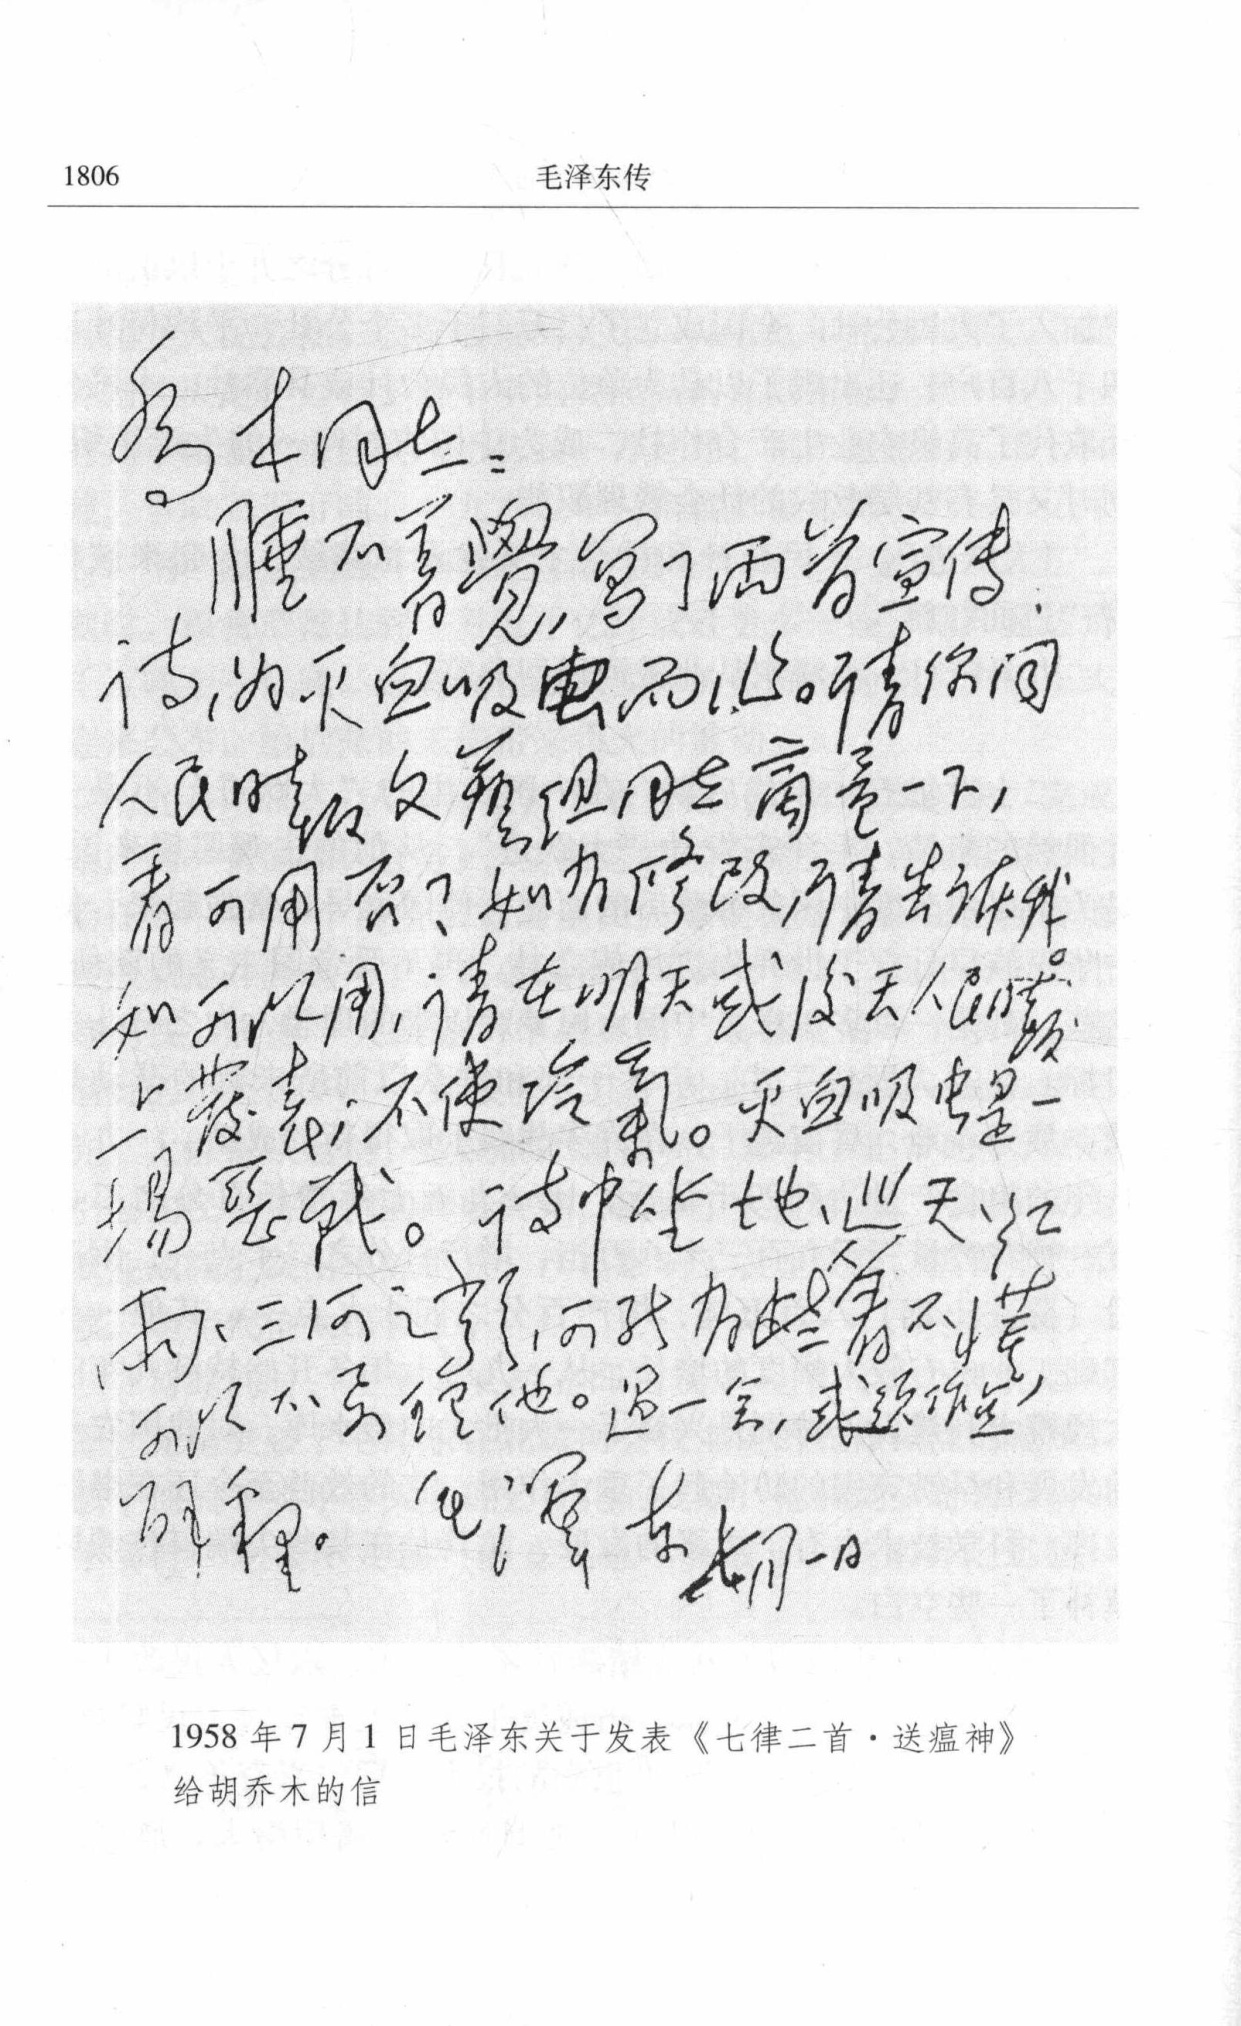 1806
毛泽东传
乔木同志：
睡不着覺，写了两首宣传
诗，为灭血吸虫而作。请你同
人民日报文藝组同志商量一下，
看可用否？如有修改，请告诉我。
如可以用，请在明天或后天人民日报
上發表，不使冷氣。灭血吸虫是一
場恶戰。诗中坐地、巡天、红
雨、三河之类，可能有些人看不懂，
可以不要理他。过一会，或须作点
解釋。毛澤东 七月一日
1958 年 7 月 1 日毛泽东关于发表《七律二首·送瘟神》
给胡乔木的信